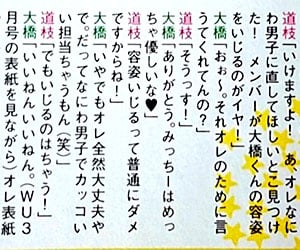 道枝「いけますよ！　あ、オレなに
わ男子に直してほしいとこ見つけ
た！　メンバーが大橋くんの容姿
をいじるのがイヤ！」
大橋「おぉ〜。それオレのために言
うてくれてんの？」
道枝「そうっす！」
大橋「ありがとう。みっちーはめっ
ちゃ優しいな♥」
道枝「容姿いじるって普通にダメ
ですからね！」
大橋「いやでもオレ全然大丈夫や
で。だってなにわ男子でカッコい
い担当ちゃうもん（笑）」
道枝「でもいじるのはちゃう！」
大橋「いいねんいいねん。（WU3
月号の表紙を見ながら）オレ表紙